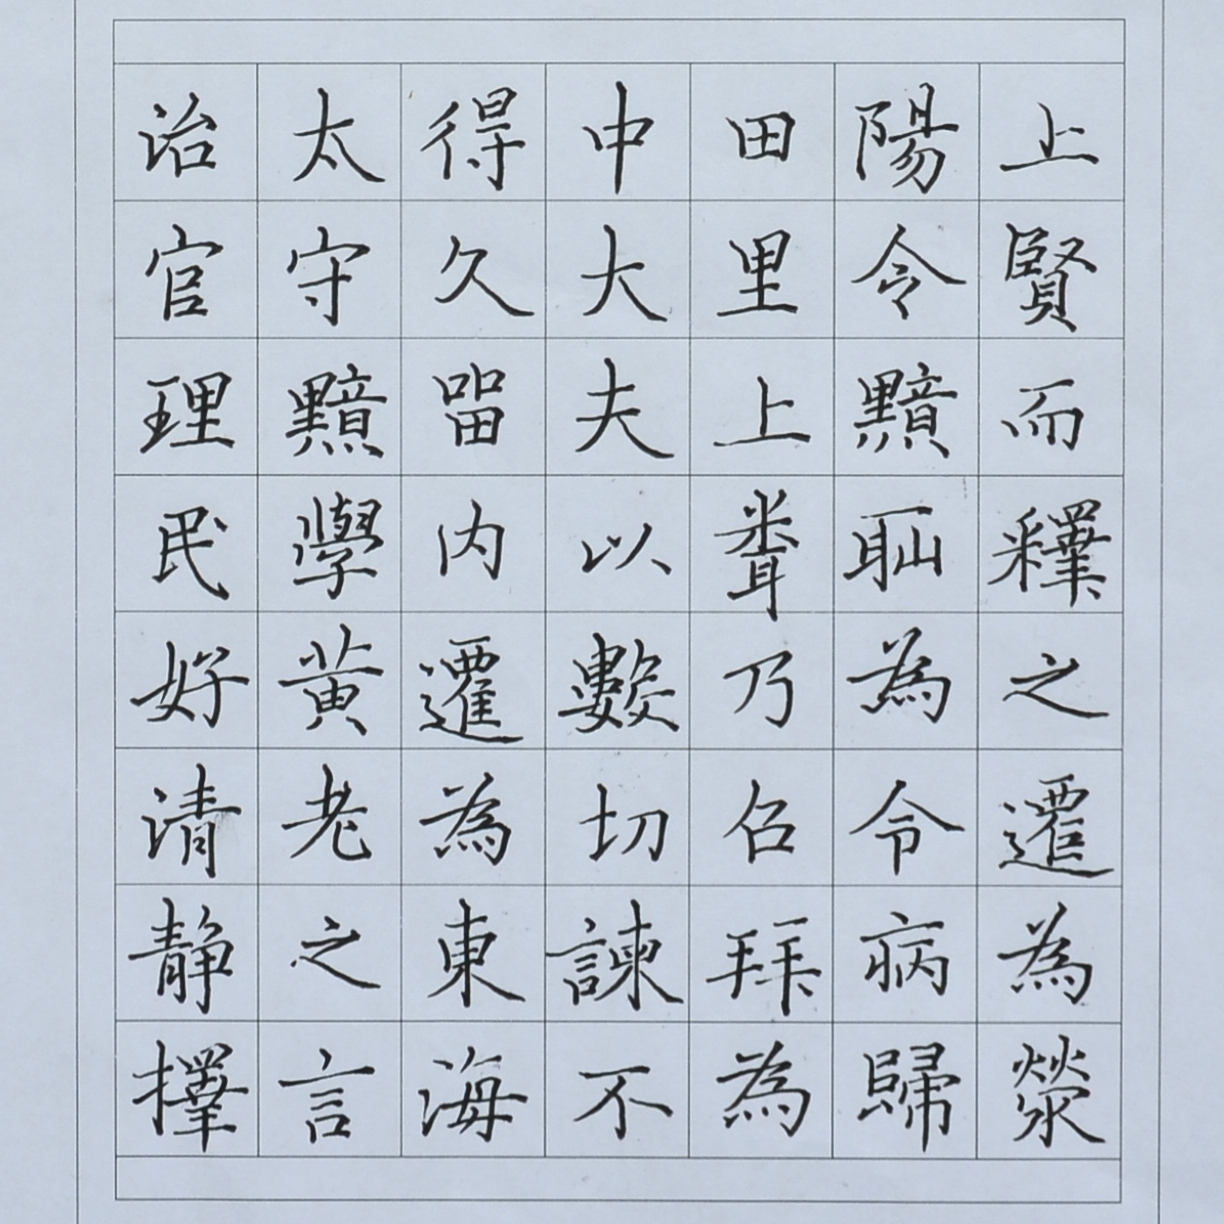 上賢而釋之遷為滎
陽令黯恥為令病歸
田里上聞乃召拜為
中大夫以數切諫不
得久留內遷為東海
太守黯學黃老之言
治官理民好清靜擇